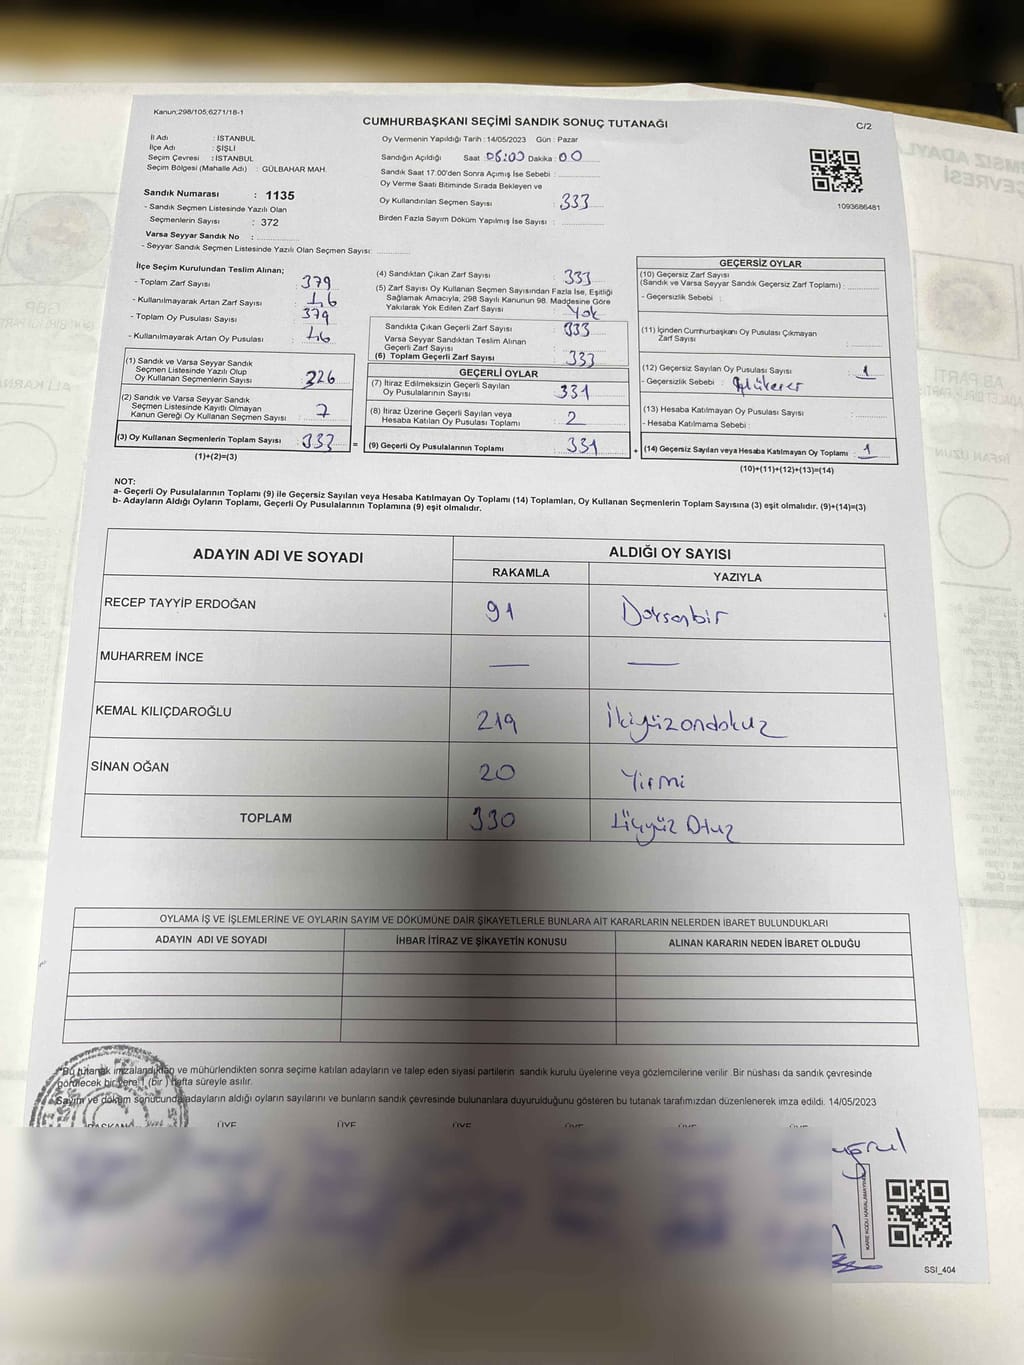 Kanun:298/105;6271/18-1
CUMHURBAŞKANI SEÇİMİ SANDIK SONUÇ TUTANAĞI
C/2
İl Adı : İSTANBUL
İlçe Adı : ŞİŞLİ
Seçim Çevresi : İSTANBUL
Seçim Bölgesi (Mahalle Adı) : GÜLBAHAR MAH.
Sandık Numarası : 1135
- Sandık Seçmen Listesinde Yazılı Olan
Seçmenlerin Sayısı : 372
Varsa Seyyar Sandık No :
- Seyyar Sandık Seçmen Listesinde Yazılı Olan Seçmen Sayısı:
Oy Vermenin Yapıldığı Tarih : 14/05/2023 Gün : Pazar
Sandığın Açıldığı Saat 06:00 Dakika : 00
Sandık Saat 17.00'den Sonra Açımış İse Sebebi :
Oy Verme Saati Bitiminde Sırada Bekleyen ve
Oy Kullandırılan Seçmen Sayısı : 333
Birden Fazla Sayım Döküm Yapılmış İse Sayısı :
1093686481
İlçe Seçim Kurulundan Teslim Alınan;
- Toplam Zarf Sayısı : 379
- Kullanılmayarak Artan Zarf Sayısı : 46
- Toplam Oy Pusulası Sayısı : 379
- Kullanılmayarak Artan Oy Pusulası : 46
(1) Sandık ve Varsa Seyyar Sandık
Seçmen Listesinde Yazılı Olup
Oy Kullanan Seçmenlerin Sayısı : 326
(2) Sandık ve Varsa Seyyar Sandık
Seçmen Listesinde Kayıtlı Olmayan
Kanun Gereği Oy Kullanan Seçmen Sayısı : 7
(3) Oy Kullanan Seçmenlerin Toplam Sayısı : 333 =
(1)+(2)=(3)
(4) Sandıktan Çıkan Zarf Sayısı : 333
(5) Zarf Sayısı Oy Kullanan Seçmen Sayısından Fazla İse, Eşitliği
Sağlamak Amacıyla, 298 Sayılı Kanunun 98. Maddesine Göre
Yakılarak Yok Edilen Zarf Sayısı : Yok
Sandıkta Çıkan Geçerli Zarf Sayısı : 333
Varsa Seyyar Sandıktan Teslim Alınan
Geçerli Zarf Sayısı :
(6) Toplam Geçerli Zarf Sayısı : 333
GEÇERLİ OYLAR
(7) İtiraz Edilmeksizin Geçerli Sayılan
Oy Pusulalarının Sayısı : 331
(8) İtiraz Üzerine Geçerli Sayılan veya
Hesaba Katılan Oy Pusulası Toplamı : 2
(9) Geçerli Oy Pusulalarının Toplamı : 331 +
GEÇERSİZ OYLAR
(10) Geçersiz Zarf Sayısı
(Sandık ve Varsa Seyyar Sandık Geçersiz Zarf Toplamı) :
- Geçersizlik Sebebi :
(11) İçinden Cumhurbaşkanı Oy Pusulası Çıkmayan
Zarf Sayısı :
(12) Geçersiz Sayılan Oy Pusulası Sayısı : 1
- Geçersizlik Sebebi :
(13) Hesaba Katılmayan Oy Pusulası Sayısı :
- Hesaba Katılmama Sebebi :
(14) Geçersiz Sayılan veya Hesaba Katılmayan Oy Toplamı : 1
(10)+(11)+(12)+(13)=(14)
NOT:
a- Geçerli Oy Pusulalarının Toplamı (9) ile Geçersiz Sayılan veya Hesaba Katılmayan Oy Toplamı (14) Toplamları, Oy Kullanan Seçmenlerin Toplam Sayısına (3) eşit olmalıdır. (9)+(14)=(3)
b- Adayların Aldığı Oyların Toplamı, Geçerli Oy Pusulalarının Toplamına (9) eşit olmalıdır.
ADAYIN ADI VE SOYADI
ALDIĞI OY SAYISI
RAKAMLA YAZIYLA
RECEP TAYYİP ERDOĞAN 91 Doksanbir
MUHARREM İNCE — —
KEMAL KILIÇDAROĞLU 219 İkiyüzondokuz
SİNAN OĞAN 20 Yirmi
TOPLAM 330 Üçyüz Otuz
OYLAMA İŞ VE İŞLEMLERİNE VE OYLARIN SAYIM VE DÖKÜMÜNE DAİR ŞİKAYETLERLE BUNLARA AİT KARARLARIN NELERDEN İBARET BULUNDUKLARI
ADAYIN ADI VE SOYADI İHBAR İTİRAZ VE ŞİKAYETİN KONUSU ALINAN KARARIN NEDEN İBARET OLDUĞU
"Bu tutanak imzalandıktan ve mühürlendikten sonra seçime katılan adayların ve talep eden siyasi partilerin sandık kurulu üyelerine veya gözlemcilerine verilir .Bir nüshası da sandık çevresinde
görülecek bir yere 1 (bir ) hafta süreyle asılır.
Sayım ve döküm sonucunda adayların aldığı oyların sayılarını ve bunların sandık çevresinde bulunanlara duyurulduğunu gösteren bu tutanak tarafımızdan düzenlenerek imza edildi. 14/05/2023
BAŞKAN ÜYE ÜYE ÜYE ÜYE ÜYE ÜYE
KARE KODU KARALAMAYINIZ
SSI_404